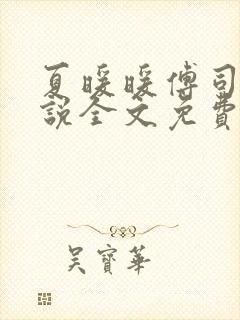 夏暖暖傅司
說全文免費
吳寶華